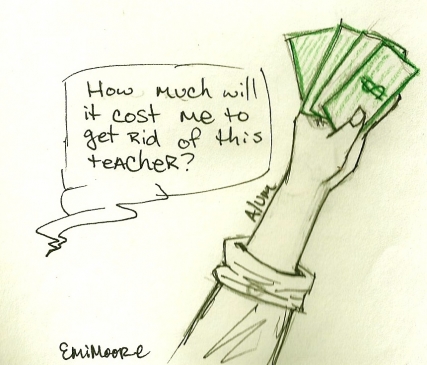 How much will
it cost me to
get Rid of this
teAcheR?
$
Alum
EmiMooRe